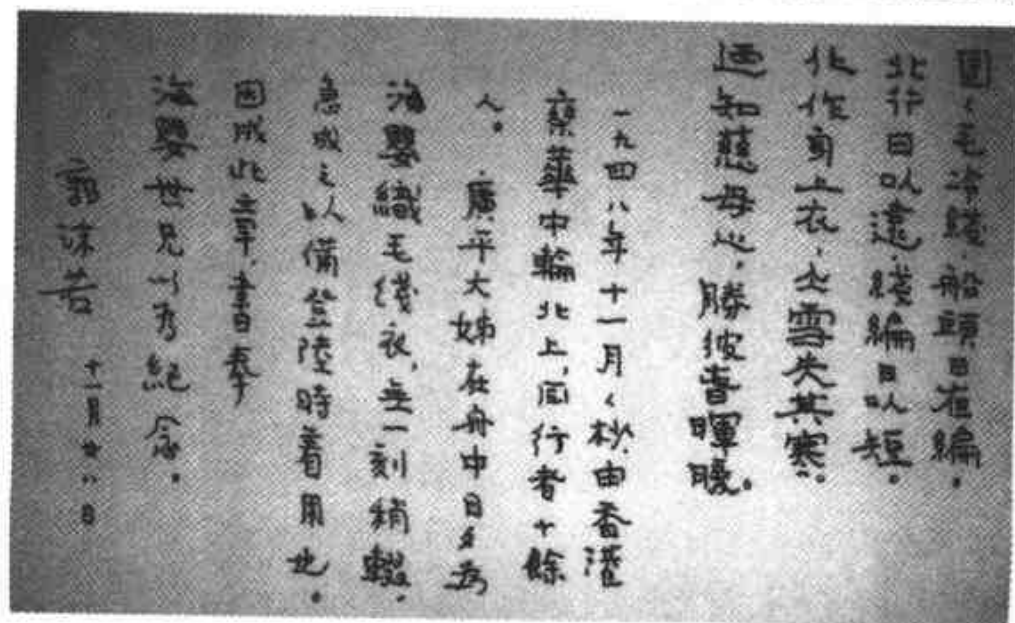 團々毛冷綫，船頭日在編。
北行日以遠，綫編日以短。
化作身上衣，大雪失其寒。
乃知慈母心，勝彼春暉暖。
一九四八年十一月之杪，由香港
乘華中輪北上，同行者十餘
人。廣平大姊在舟中日夕為
海嬰織毛綫衣，無一刻稍輟，
急成之以備登陸時着用也。
因成此章，書奉
海嬰世兄以為紀念。
郭沫若 十一月廿八日